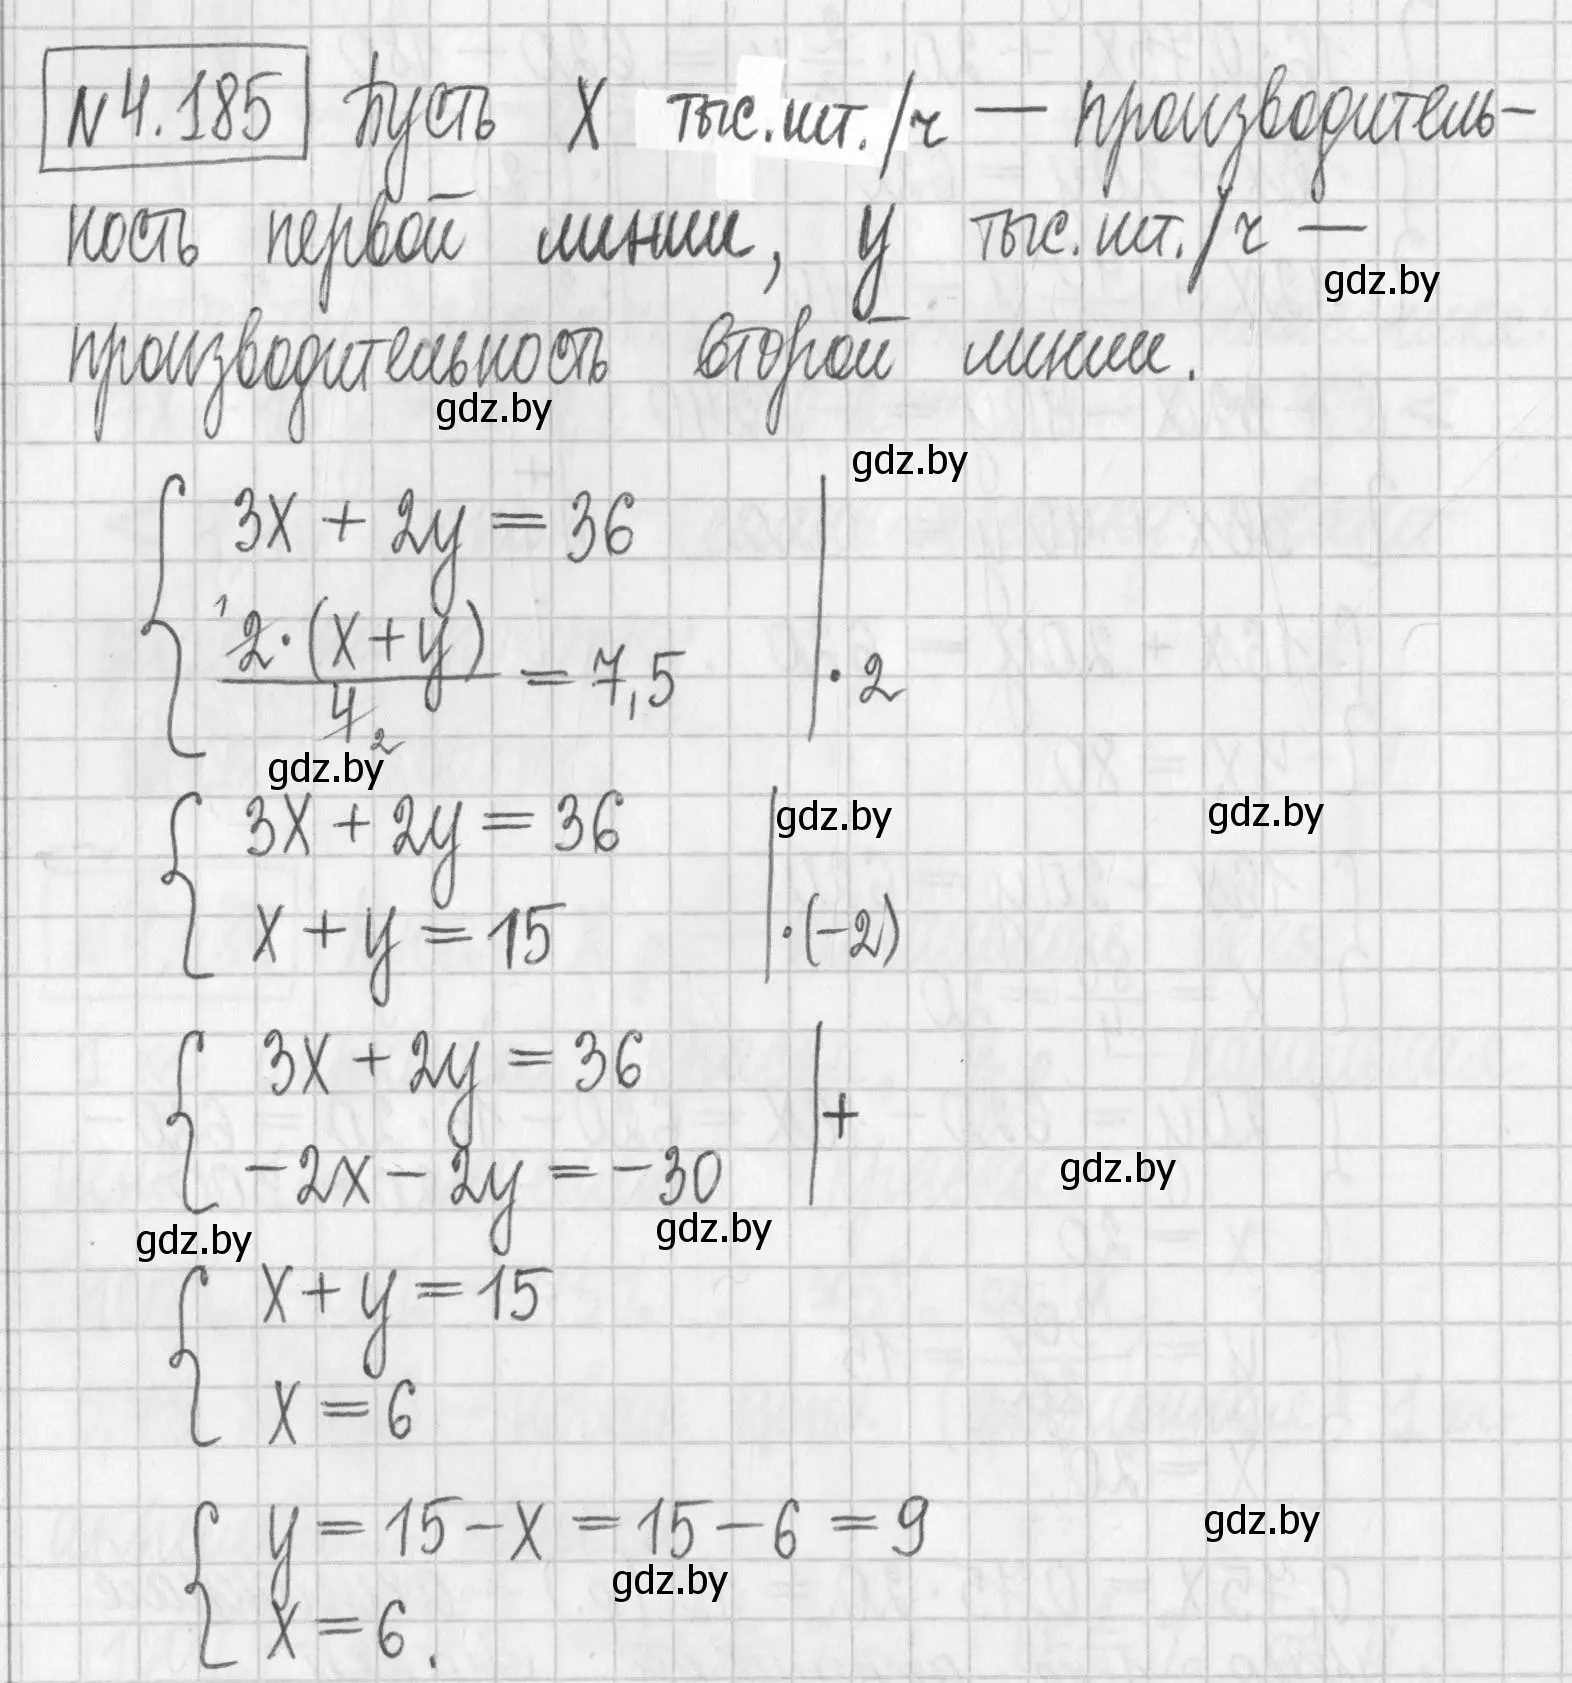 №4.185 Пусть x тыс.шт./ч — производитель-
ность первой линии, y тыс.шт./ч —
gdz.by
производительность второй линии.
gdz.by
gdz.by
3x + 2y = 36
1 2·(x+y)/4 2 = 7,5 |·2
gdz.by
3x + 2y = 36
gdz.by
gdz.by
x + y = 15 |·(-2)
3x + 2y = 36 | +
-2x - 2y = -30
gdz.by
gdz.by
gdz.by
x + y = 15
x = 6
y = 15 - x = 15 - 6 = 9
gdz.by
gdz.by
x = 6.